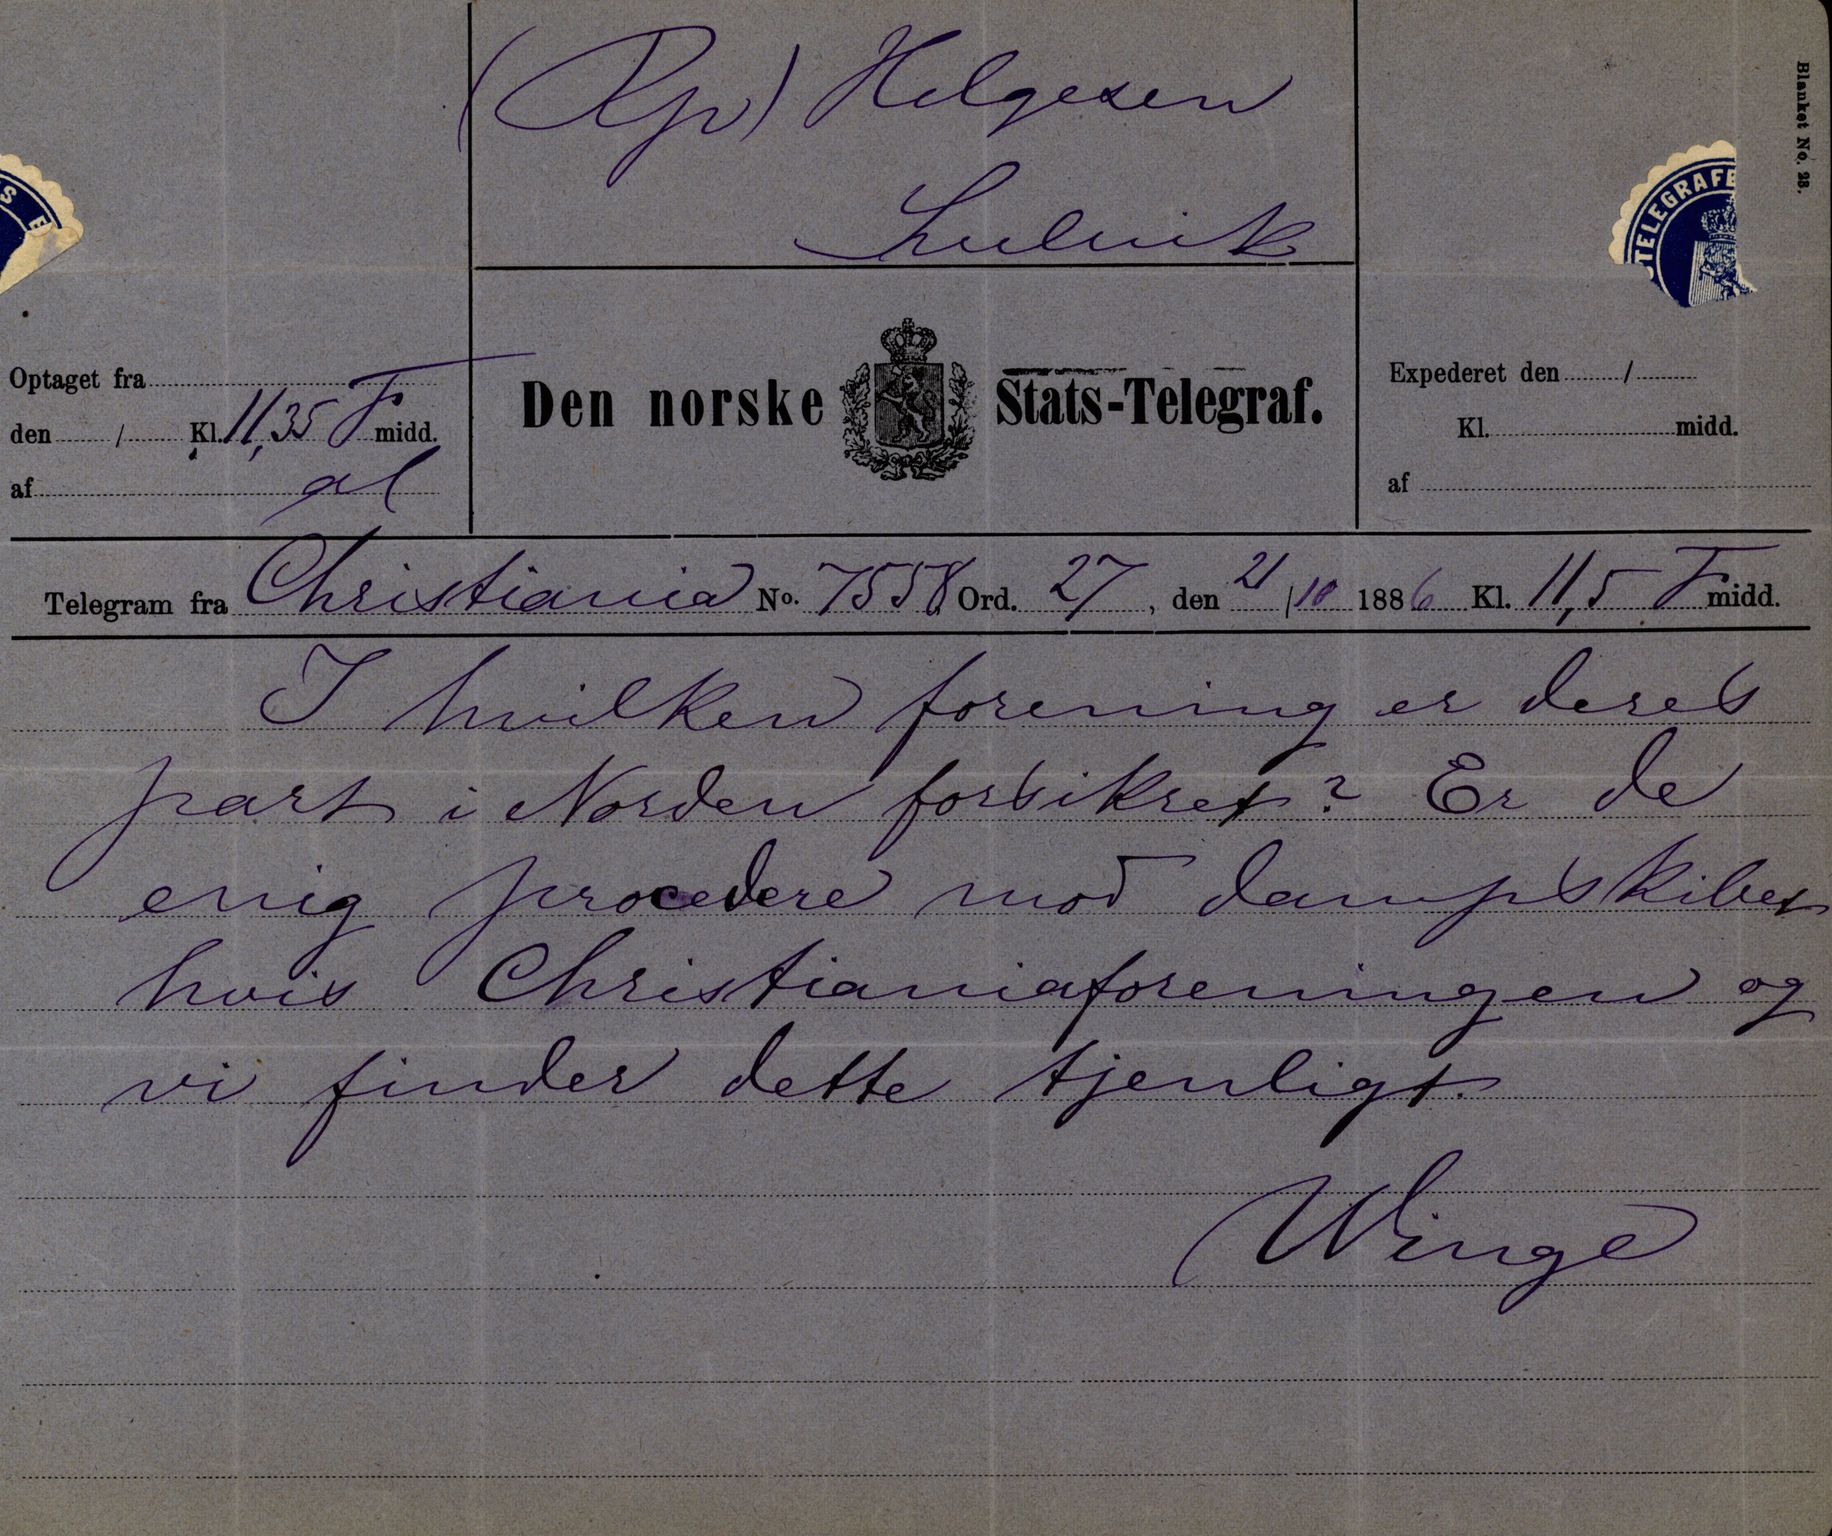 (Rp) Helgesen
Lulvik
Blanket No. 23.
S E
TELEGRAFE
Optaget fra
den / Kl. 11,35 F midd.
af al
Den norske Stats-Telegraf.
Expederet den /
Kl. midd.
af
Telegram fra Christiania No. 7558 Ord. 27, den 21/10 1886 Kl. 11,5 F midd.
I hvilken forening er deres
part i Norden forsikret? Er de
enig procedere mod dampskibet
hvis Christianiaforeningen og
vi finder dette tjenligt.
Winge